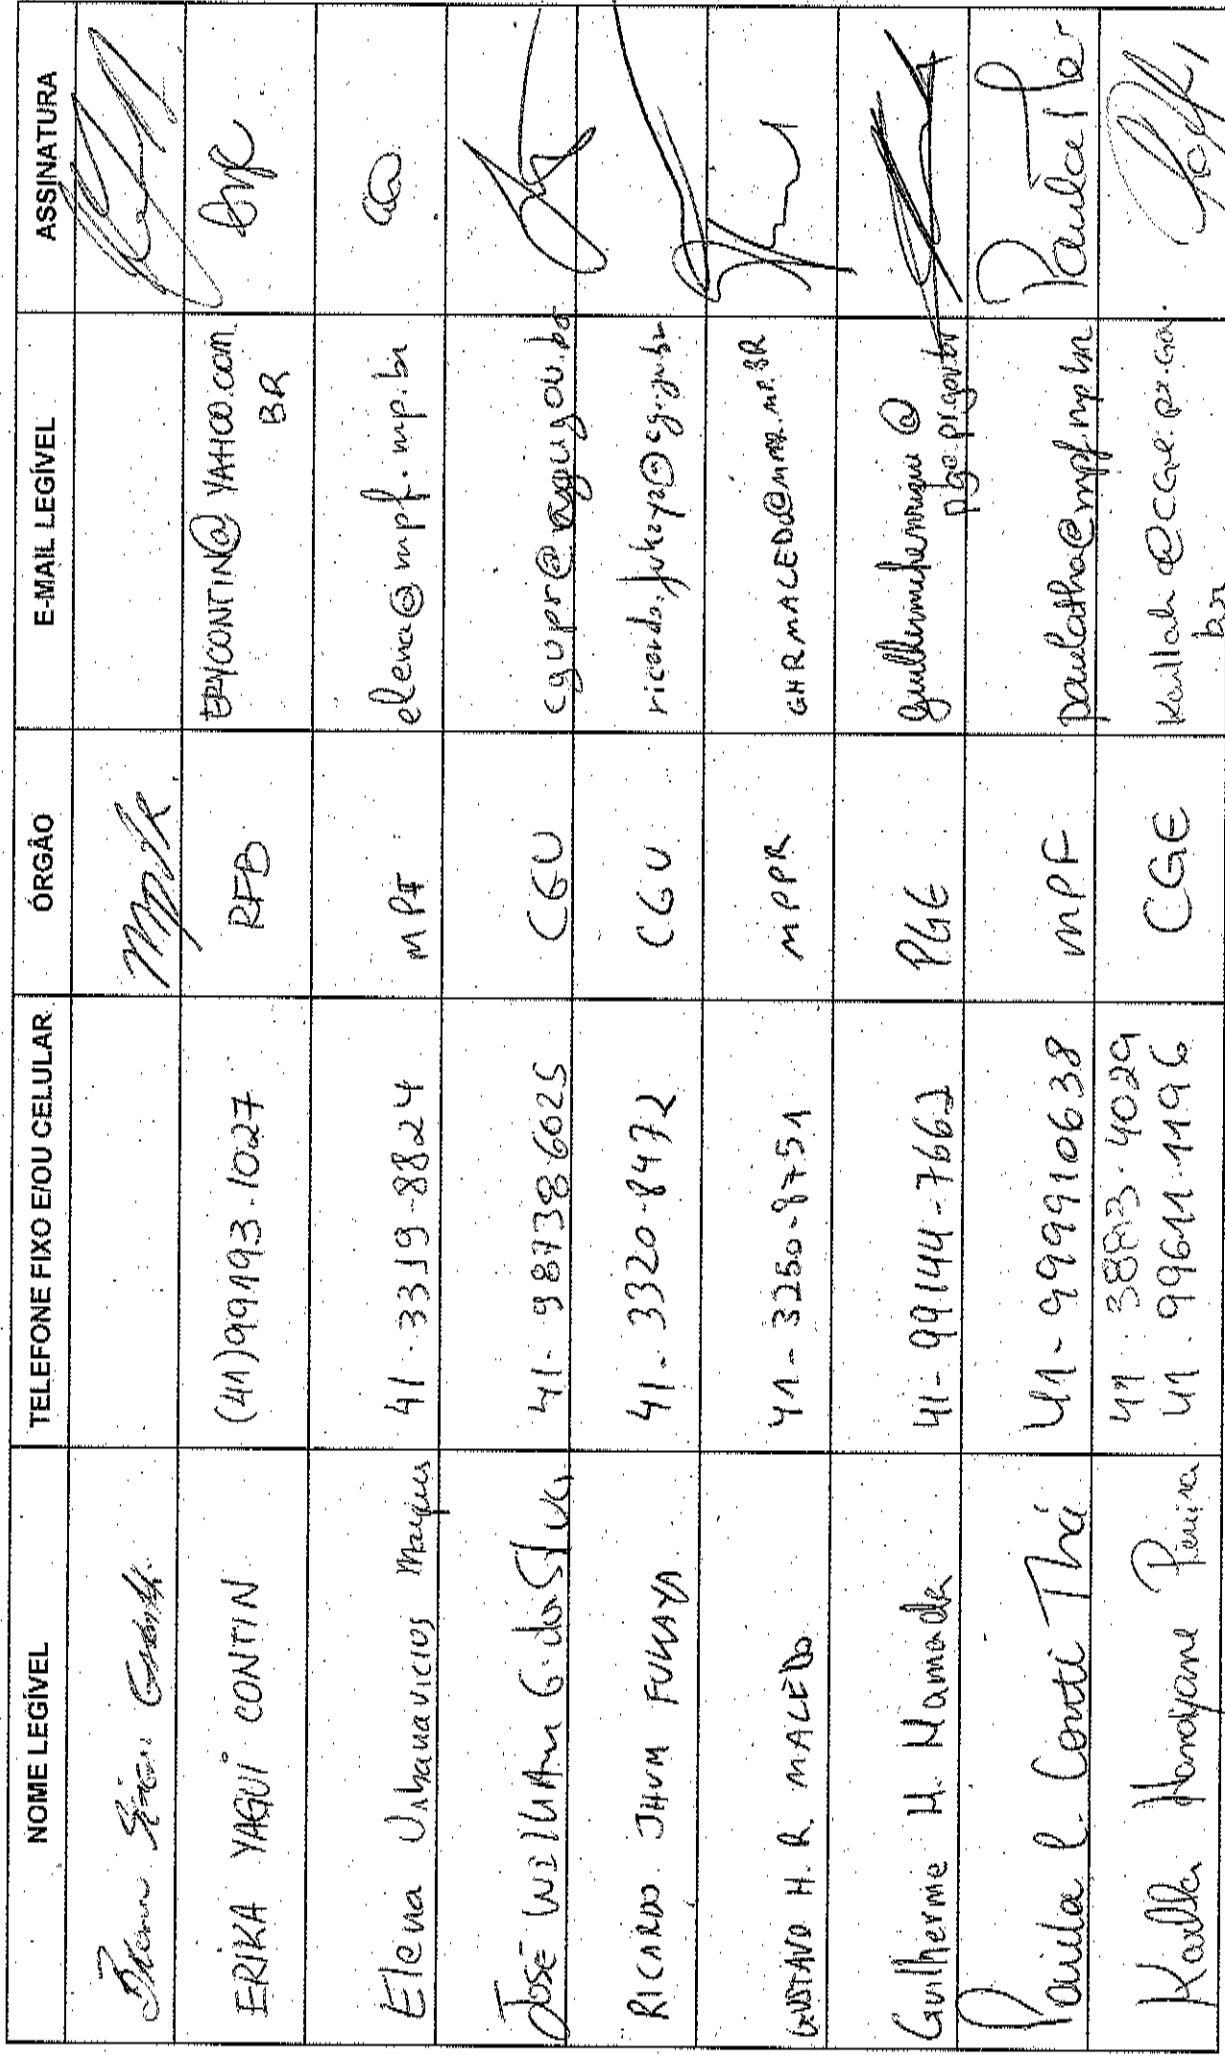 NOME LEGÍVEL TELEFONE FIXO E/OU CELULAR ÓRGÃO E-MAIL LEGÍVEL ASSINATURA
MPPR
ERIKA YAGUI CONTIN (41)99193-1027 RFB ERYCONTIN@YAHOO.COM.
BR
Elena Urbanavicius Marques 41-3319-8824 MPF elena@mpf.mp.br
José William G. da Silva 41-987386025 CGU cgupr@cgu.gov.br
RICARDO JHUM FUKAYA 41-3320-8472 CGU
GUSTAVO H. R. MACEDO 41-3250-8751 MPPR GHRMACEDO@MPPR.MP.BR
Guilherme H. Hamada 41-99144-7662 PGE guilhermehenrique@
pge.pr.gov.br
Paula C. Conti Thá 41-999910638 MPF paulatha@mpf.mp.br
41 3883-4029
Karlla Harayane Pereira 41.99611-1196 CGE
br